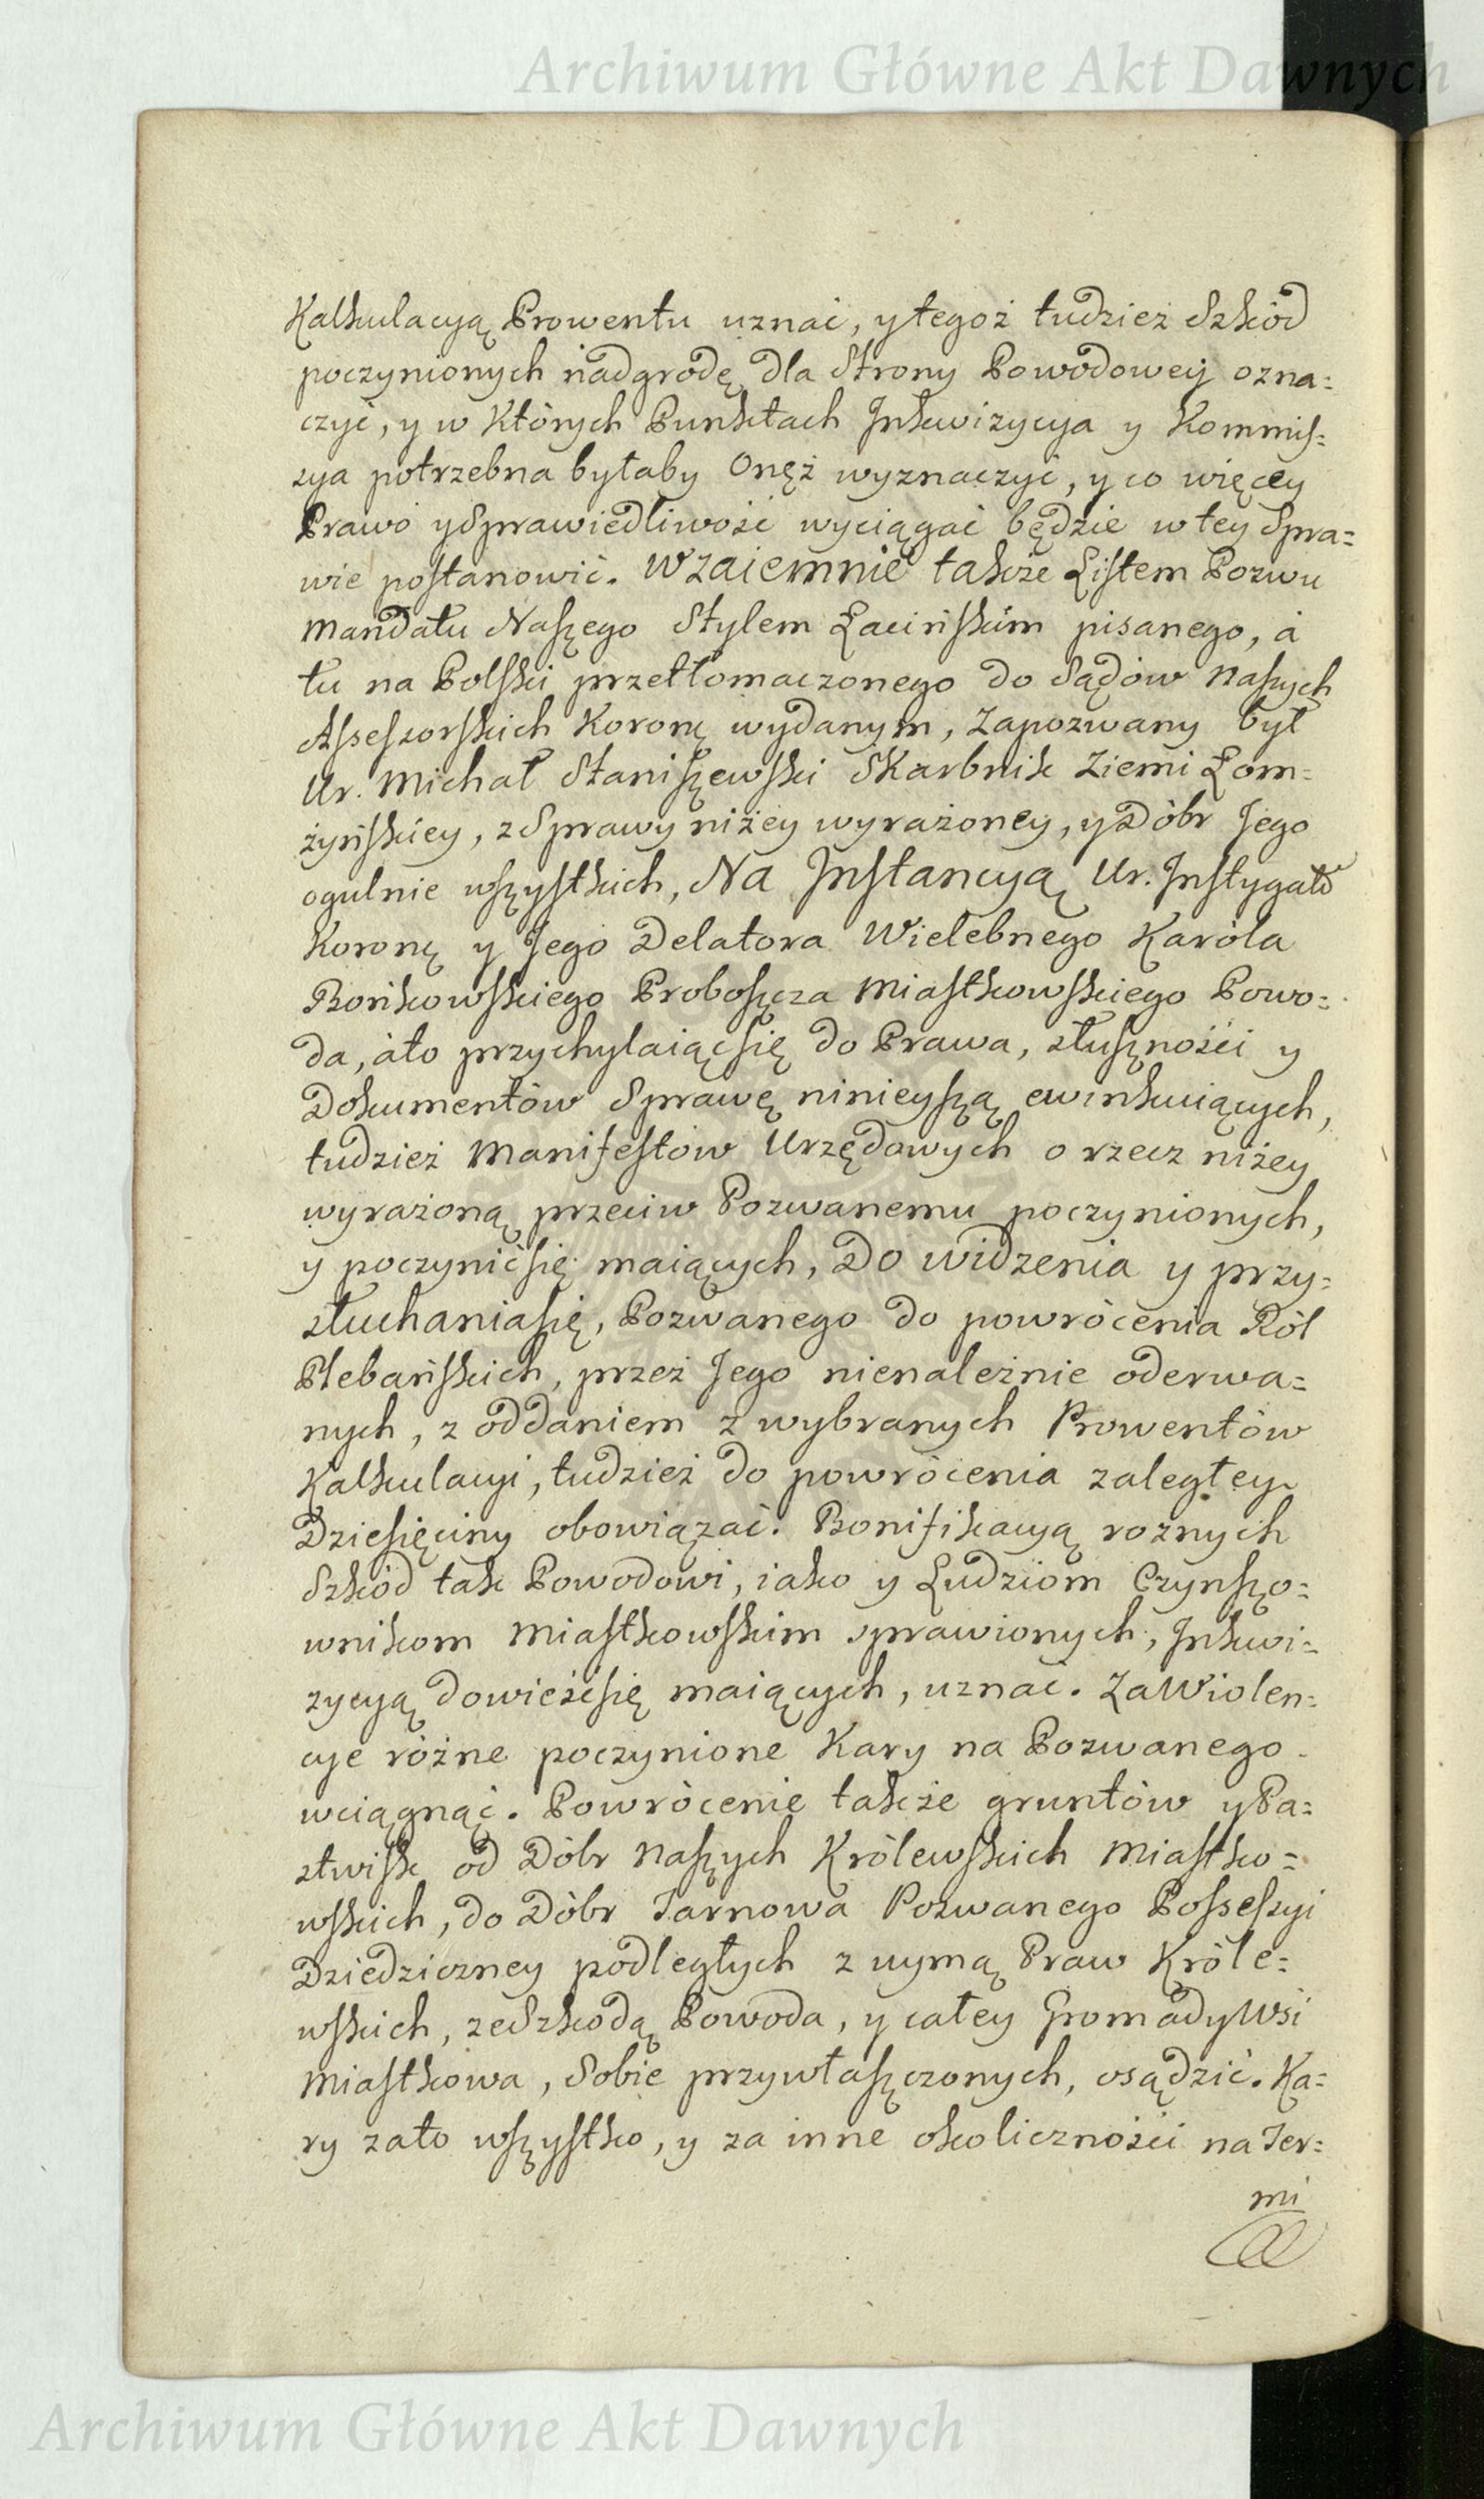 Archiwum Główne Akt Dawnych
Kalkulacyą Prowentu uznać, y tegoż tudzież Szkód
poczynionych nadgrodę dla Strony Powodowey ozna=
czyć, y w Których Punktach Inkwizycya y Kommis=
sya potrzebna byłaby Onęż wyznaczyć, y co więcey
Prawo y Sprawiedliwość wyciągać będzie w tey Spra=
wie postanowić. Wzaiemnie także Listem Pozwu
Mandatu Naszego Stylem Łacińskim pisanego, a
tu na Polski przetłomaczonego do Sądów Naszych
Assessorskich Koronę wydanym, Zapozwany był
Ur. Michał Staniszewski Skarbnik Ziemi Łom=
żyńskiey, z Sprawy niżey wyrażoney, y Dóbr Jego
ogulnie wszystkich, Na Instancyą Ur. Instygato
Koronę y Jego Delatora Wielebnego Karola
Bońkowskiego Proboszcza Miastkowskiego Powo=
da, ato przychylaiąc się do Prawa, słuszności y
Dokumentów Sprawę ninieyszą ewinkuiących,
tudzież Manifestów Urzędowych o rzecz niżey
wyrażoną przeciw Pozwanemu poczynionych,
y poczynić się maiących, Do widzenia y przy=
słuchania się, Pozwanego do powrócenia Ról
Plebańskich, przez Jego nienależnie oderwa=
nych, z oddaniem z wybranych Prowentów
Kalkulacyi, tudzież do powrócenia zaległey
Dziesięciny obowiązać. Bonifikacyą roznych
Szkód tak Powodowi, iako y Ludziom Czynszo=
wnikom Miastkowskim sprawionych, Inkwi=
zycyą dowieść się maiących, uznać. Za Wiolen=
cye różne poczynione Kary na Pozwanego
wciągnąć. Powrócenie także gruntów y Pa=
stwisk od Dóbr Naszych Królewskich Miastko=
wskich, do Dóbr Tarnowa Pozwanego Possessyi
Dziedziczney podległych z uymą Praw Króle=
wskich, ze Szkodą Powoda, y całey Gromady Wsi
Miastkowa, Sobie przywłaszczonych, osądzić. Ka=
ry zato wszystko, y za inne okoliczności na Ter=
mi
Archiwum Główne Akt Dawnych